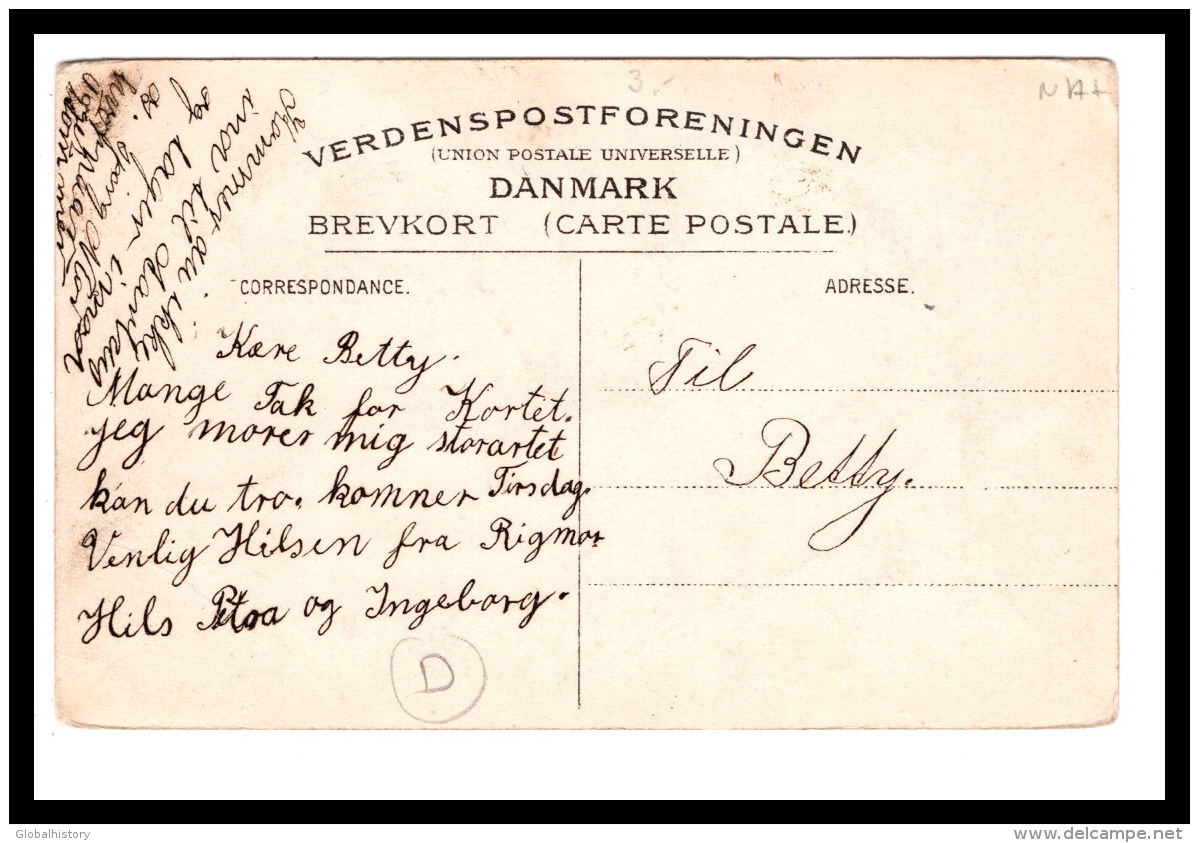 3.-
VERDENSPOSTFORENINGEN
(UNION POSTALE UNIVERSELLE)
DANMARK
BREVKORT (CARTE POSTALE.)
CORRESPONDANCE.
Kære Betty.
Mange Tak for Kortet.
jeg morer mig storartet
kan du tro. kommer Tirsdag.
Venlig Hilsen fra Rigmor
Hils Petra og Ingeborg.
D
Kommer du ikke
ind til
og i
ADRESSE.
Til
Betty.
Globalhistory
www.delcampe.net